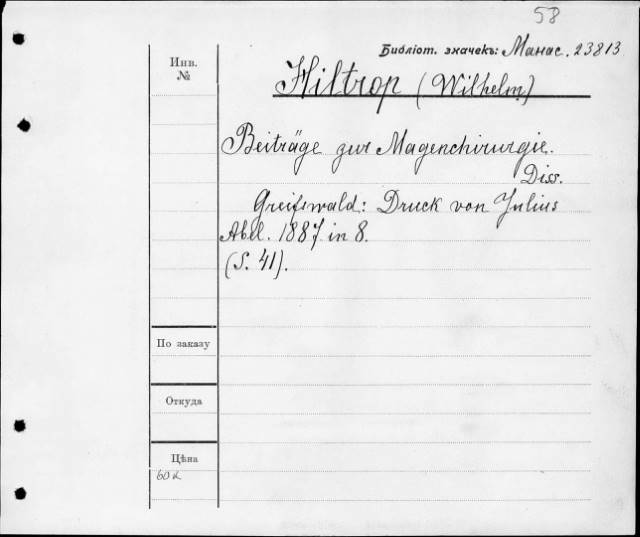 58
Библіот. значекъ: Манас. 23813
Инв.
№
Hiltrop (Wilhelm)
Beiträge zur Magenchirurgie.
Diss.
Greifswald: Druck von Julius
Abel. 1887 in 8.
(S. 41).
По заказу
Откуда
Цѣна